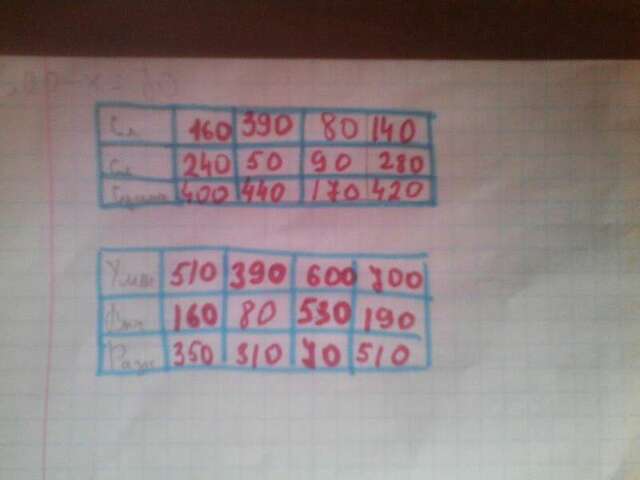 Сл 160 390 80 140
Сл 240 50 90 280
Сумма 400 440 170 420
Ум 510 390 600 700
Выч 160 80 530 190
Разн 350 310 70 510